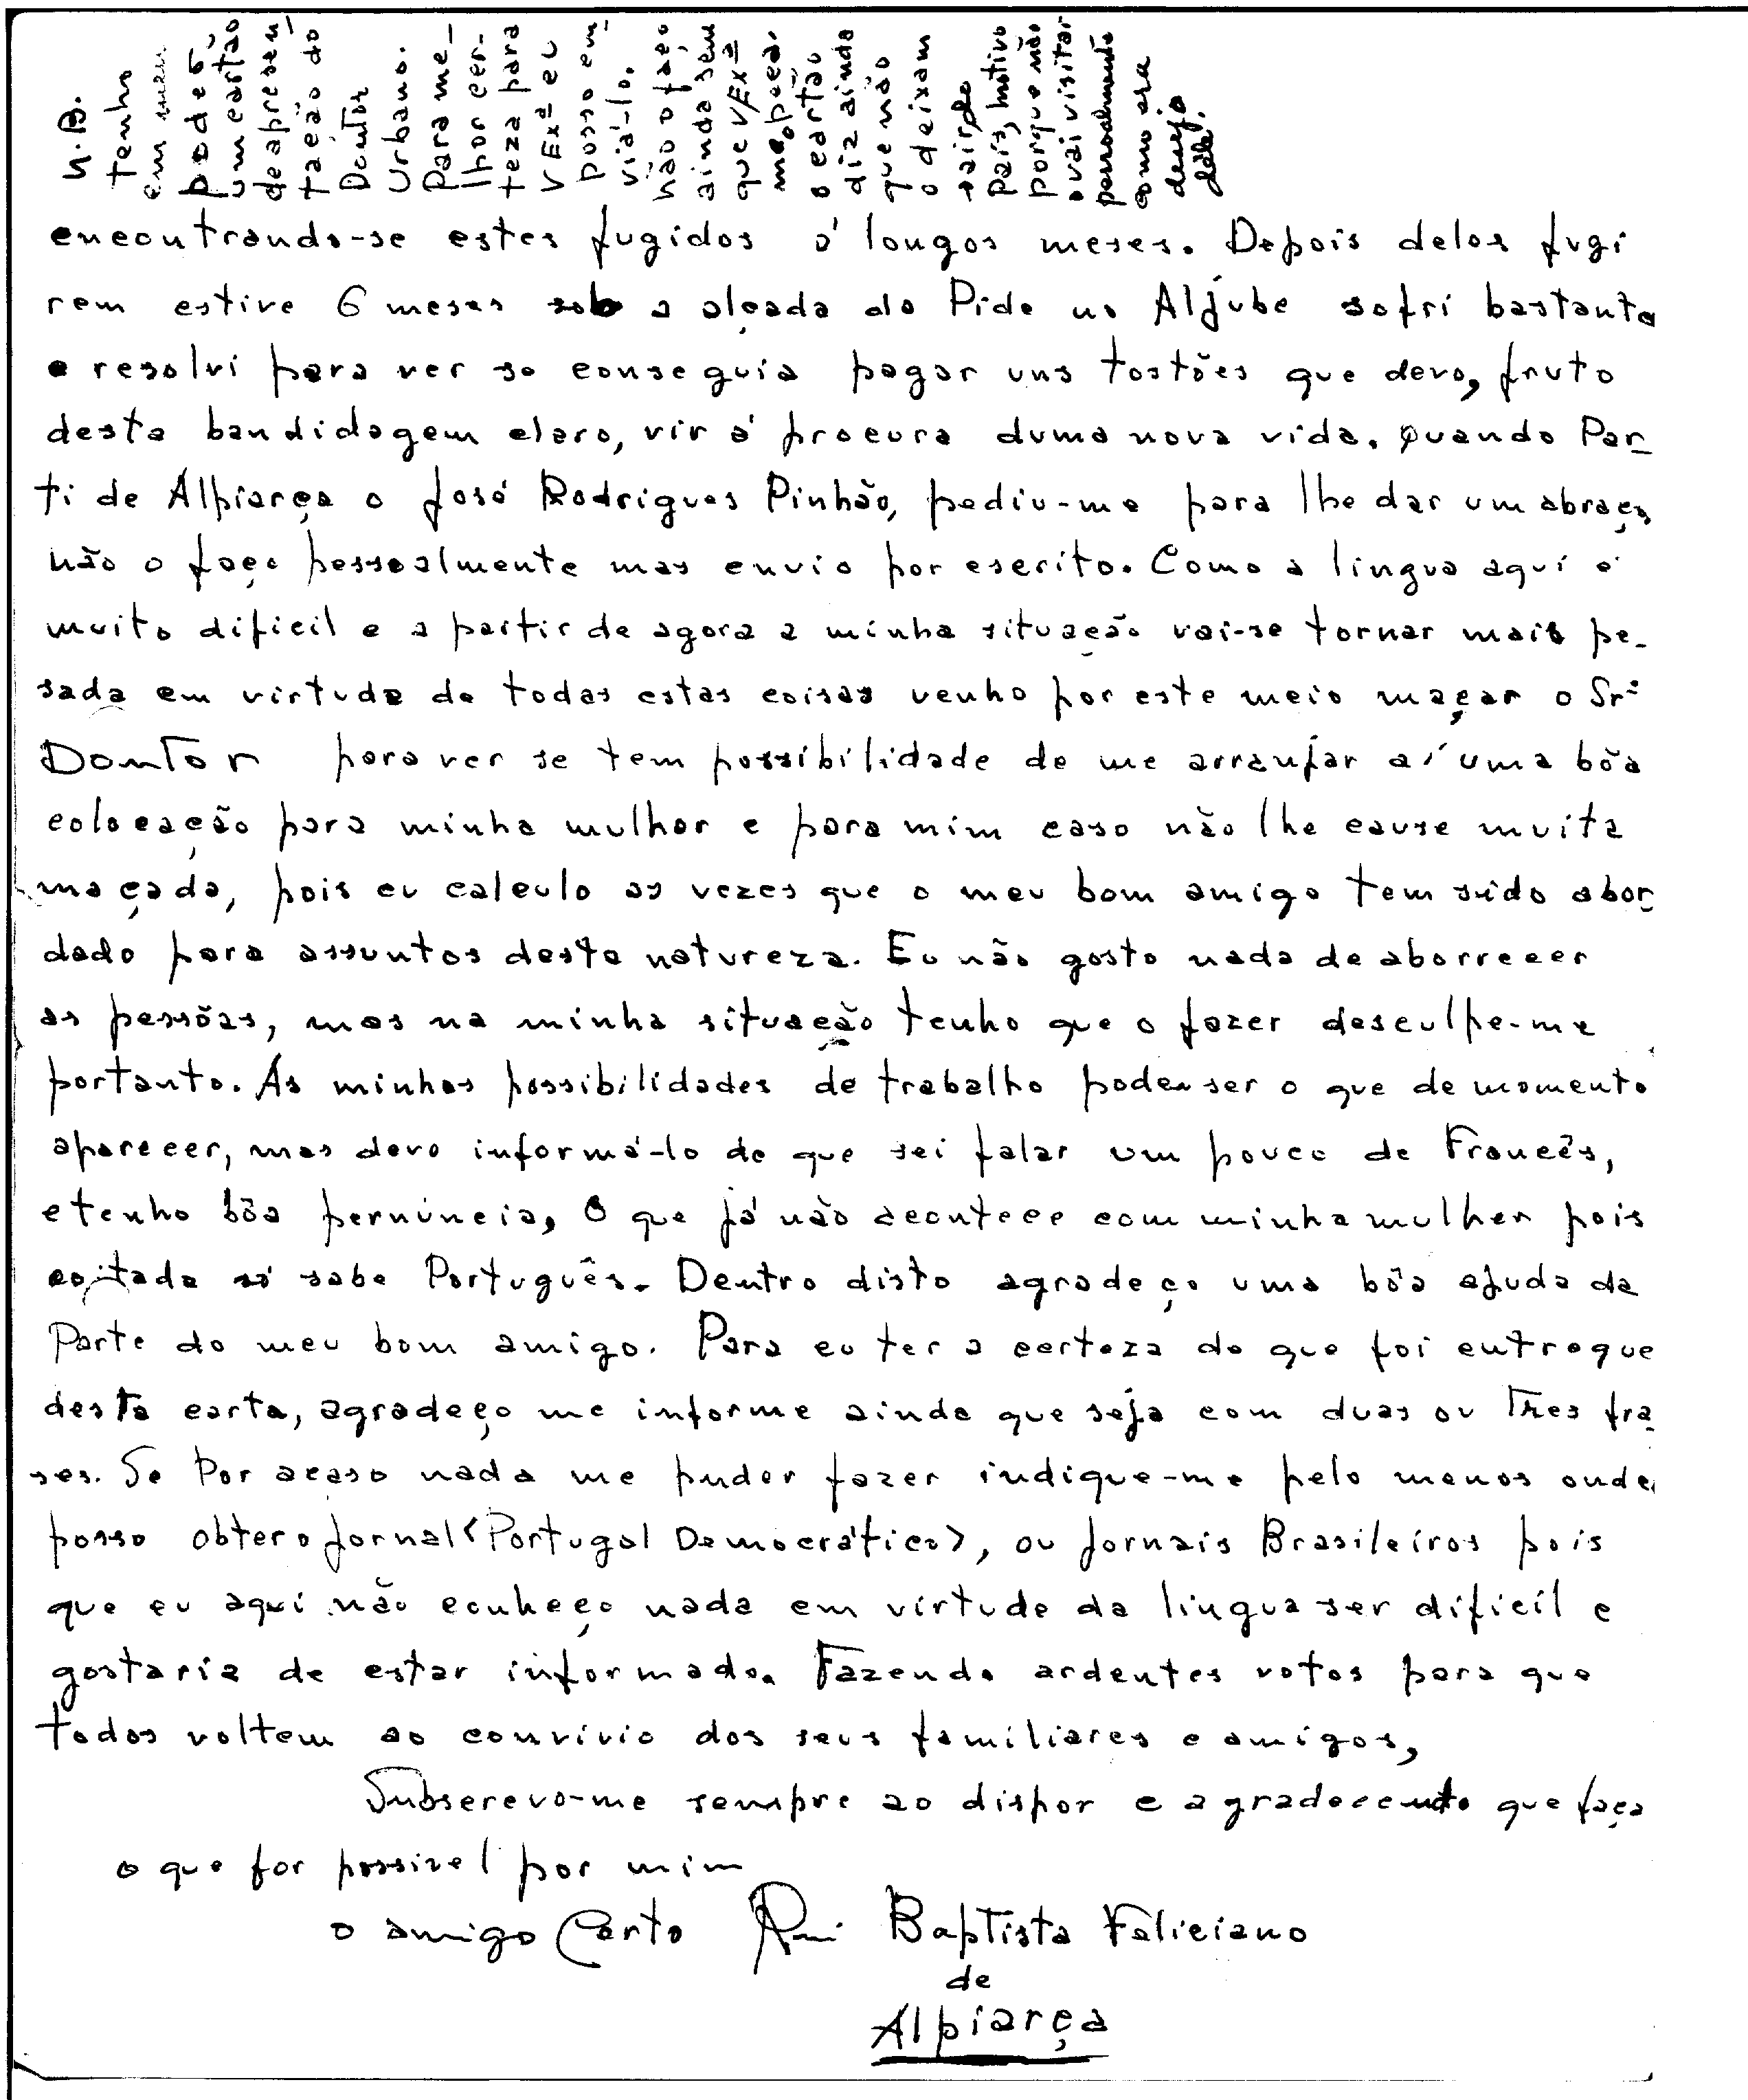 N.B.
Tenho
em meu
poder
um cartão
de apresen
tação do
Doutor
Urbano.
Para me-
lhor cer-
teza para
V Exª eu
posso em
viá-lo,
não o faço
ainda sem
que V Exª
me peça.
o cartão
diz ainda
que não
o deixam
sair do
País, motivo
porque não
o vai visitar
pessoalmente
como era
desejo
dele.
encontrando-se estes fugidos à longos meses. Depois deles fugi
rem estive 6 meses sob a alçada da Pide no Aljube sofri bastante
e resolvi para ver se conseguia pagar uns tostões que devo, fruto
desta bandidagem claro, vir à procura duma nova vida. Quando Par-
ti de Alpiarça o José Rodrigues Pinhão, pediu-me para lhe dar um abraço,
não o faço pessoalmente mas envio por escrito. Como a lingua aqui é
muito dificil e a partir de agora a minha situação vai-se tornar mais pe-
sada em virtude de todas estas coisas venho por este meio maçar o Srº
Doutor para ver se tem possibilidade de me arranjar aí uma bôa
colocação para minha mulher e para mim caso não lhe cause muita
maçada, pois eu calculo as vezes que o meu bom amigo tem sido abor
dado para assuntos desta natureza. Eu não gosto nada de aborrecer
as pessôas, mas na minha situação tenho que o fazer desculpe-me
portanto. As minhas possibilidades de trabalho podem ser o que de momento
aparecer, mas devo informá-lo de que sei falar um pouco de Francês,
e tenho bôa pernúncia, O que já não acontece com minha mulher pois
coitada só sabe Português. Dentro disto agradeço uma bôa ajuda da
Parte do meu bom amigo. Para eu ter a certeza de que foi entregue
desta carta, agradeço me informe ainda que seja com duas ou Tres fra
ses. Se Por acaso nada me puder fazer indique-me pelo menos onde
posso obter o jornal <Portugal Democrático>, ou jornais Brasileiros pois
que eu aqui não conheço nada em virtude da lingua ser dificil e
gostaria de estar informado. Fazendo ardentes votos para que
todos voltem ao convivio dos seus familiares e amigos,
Subscrevo-me sempre ao dispor e agradecendo que faça
o que for possivel por mim
o amigo Certo Rui Baptista Feliciano
de
Alpiarça